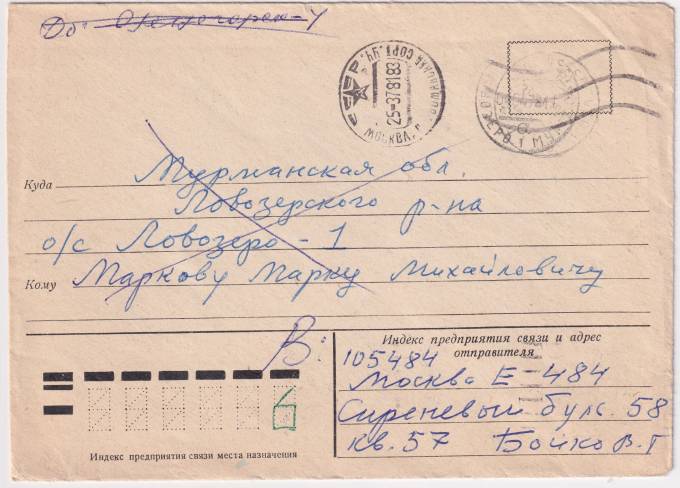 До
СССР. МОСКВА, СОРТ. УЧ.
25-378183
Куда Мурманская обл.
Ловозерского р-на
о/с Ловозеро - 1
Кому Маркову Марку Михайловичу
В:
Индекс предприятия связи и адрес
отправителя
105484
Москва Е-484
Сиреневый бульв. 58
кв. 57 Бойко В.Г
Индекс предприятия связи места назначения